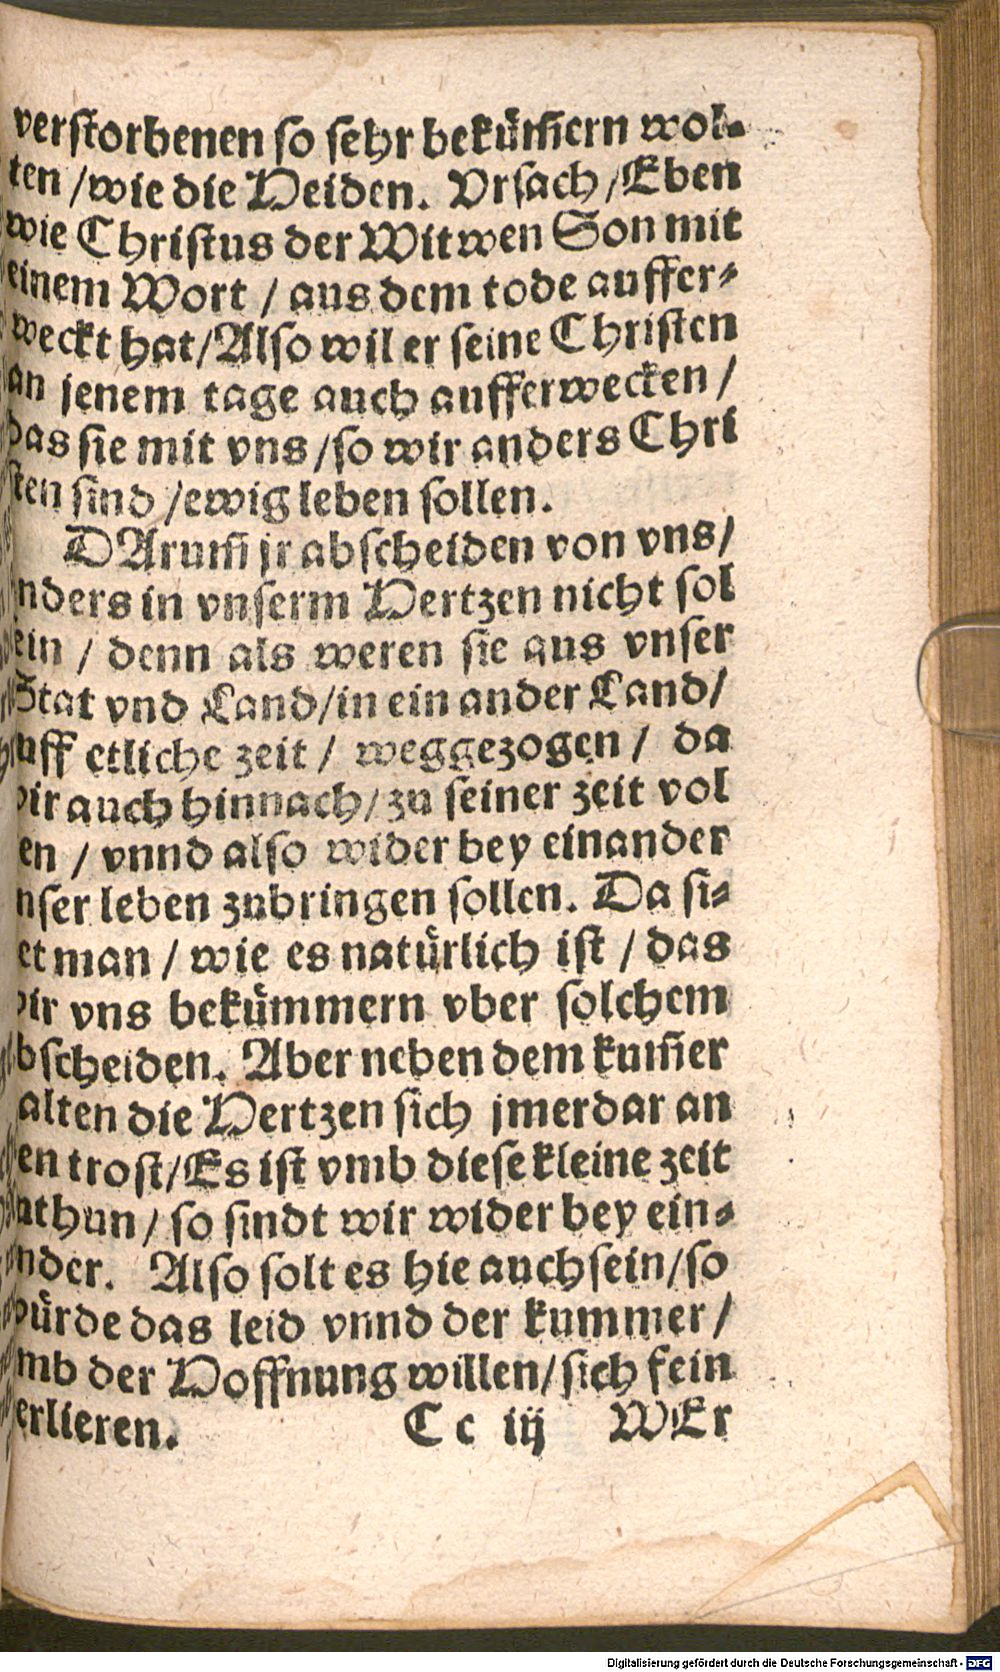 verstorbenen so sehr bekům̃ern wol-
ten / wie die Heiden. Vrsach / Eben
wie Christus der Witwen Son mit
einem Wort / aus dem tode auffer-
weckt hat / Also wil er seine Christen
an jenem tage auch aufferwecken /
das sie mit vns / so wir anders Chri
sten sind / ewig leben sollen.
DArum̃ jr abscheiden von vns /
nders in vnserm Hertzen nicht sol
ein / denn als weren sie aus vnser
Stat vnd Land / in ein ander Land /
uff etliche zeit / weggezogen / da
wir auch hinnach / zu seiner zeit vol
en / vnnd also wider bey einander
nser leben zubringen sollen. Da si-
et man / wie es natůrlich ist / das
wir vns bekůmmern vber solchem
bscheiden. Aber neben dem kum̃er
alten die Hertzen sich jmerdar an
en trost / Es ist vmb diese kleine zeit
uthun / so sindt wir wider bey ein-
nder. Also solt es hie auch sein / so
wůrde das leid vnnd der kummer /
mb der Hoffnung willen / sich fein
erlieren.
C c iij WEr
Digitalisierung gefördert durch die Deutsche Forschungsgemeinschaft - DFG